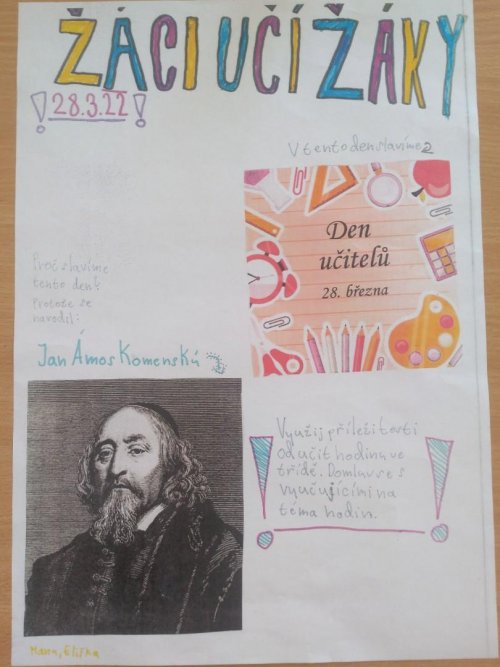 ŽÁCI UČÍ ŽÁKY
!28.3.22!
V tento den slavíme
Den
učitelů
28. března
Proč slavíme
tento den?
Protože se
narodil:
Jan Ámos Komenský
Využij příležitosti
odučit hodinu ve
třídě. Domluv se s
vyučujícími na
téma hodin.
Eliška